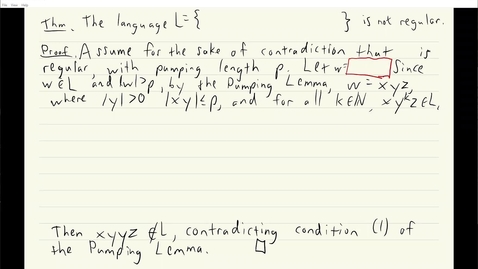 Thm. The language L={ } is not regular.
Proof. Assume for the sake of contradiction that is
regular, with pumping length p. Let w= Since
w∈L and |w|>p, by the Pumping Lemma, w=xyz,
where |y|>0 |xy|≤p, and for all k∈ℕ, xy^kz∈L,
Then xyyz∉L, contradicting condition (1) of
the Pumping Lemma. □